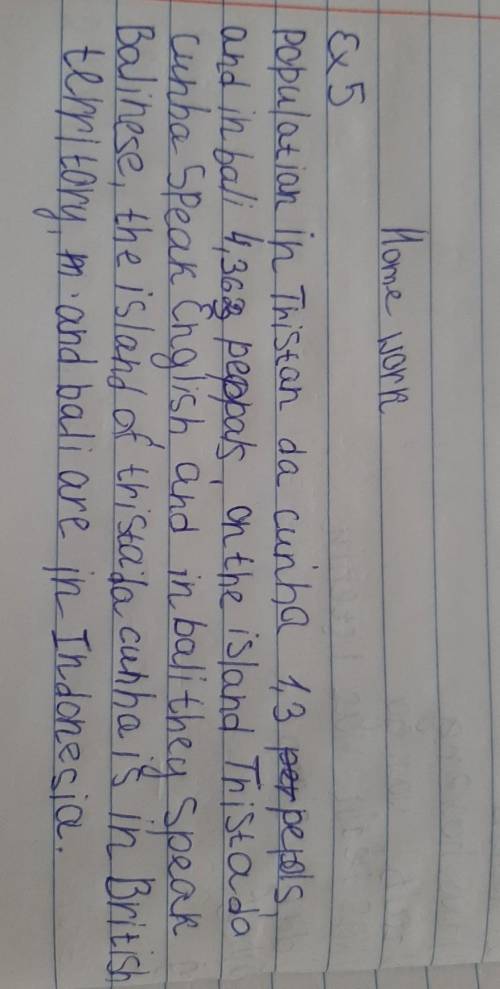 Home work
Ex 5
population in Thistan da cunha 1,3 perpepls,
and in bali 4,362 peppals, on the island Thistada
cunha Speak English and in bali they Speak
Balinese, the island of thistada cunha is in British
territory, and bali are in Indonesia.